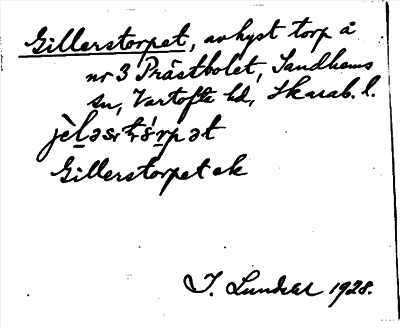 Gillerstorpet, avhyst torp å
nr 3 Prästbolet, Sandhems
sn, Vartofta hd, Skarab. l.
Gillerstorpet ek
J. Lundahl 1928.